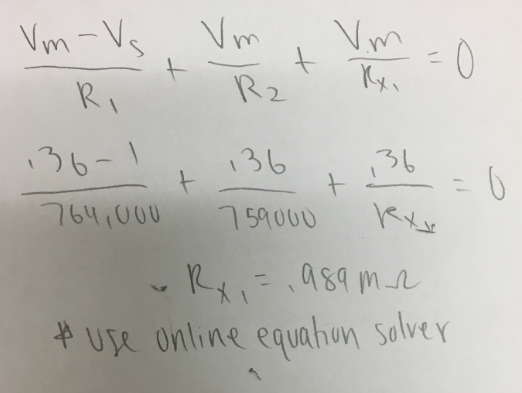 (Vm - Vs)/R1 + Vm/R2 + Vm/Rx1 = 0
(.36 - 1)/764,000 + .36/759000 + .36/Rx1 = 0
Rx1 = .989 mΩ
* use online equation solver